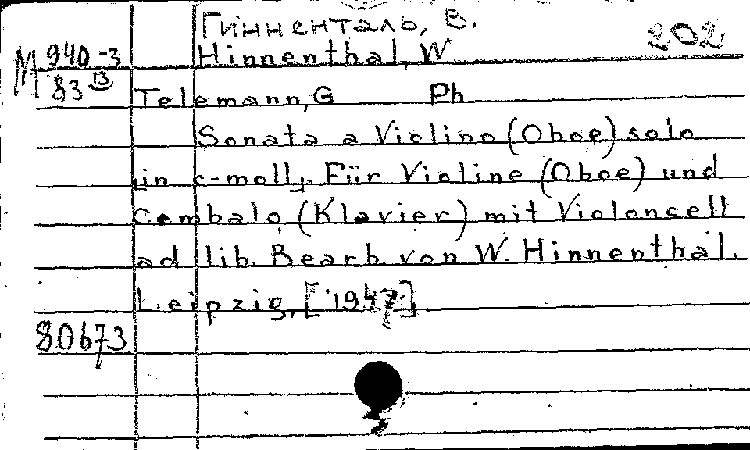 Гинненталь, В.
Hinnenthal, W 202
M 940-3
83 13
Telemann, G Ph
Sonata a Violino (Oboe) solo
in c-moll, Für Violine (Oboe) und
Cembalo (Klavier) mit Violoncell
ad lib. Bearb. von W. Hinnenthal.
Leipzig, [1947]
80673